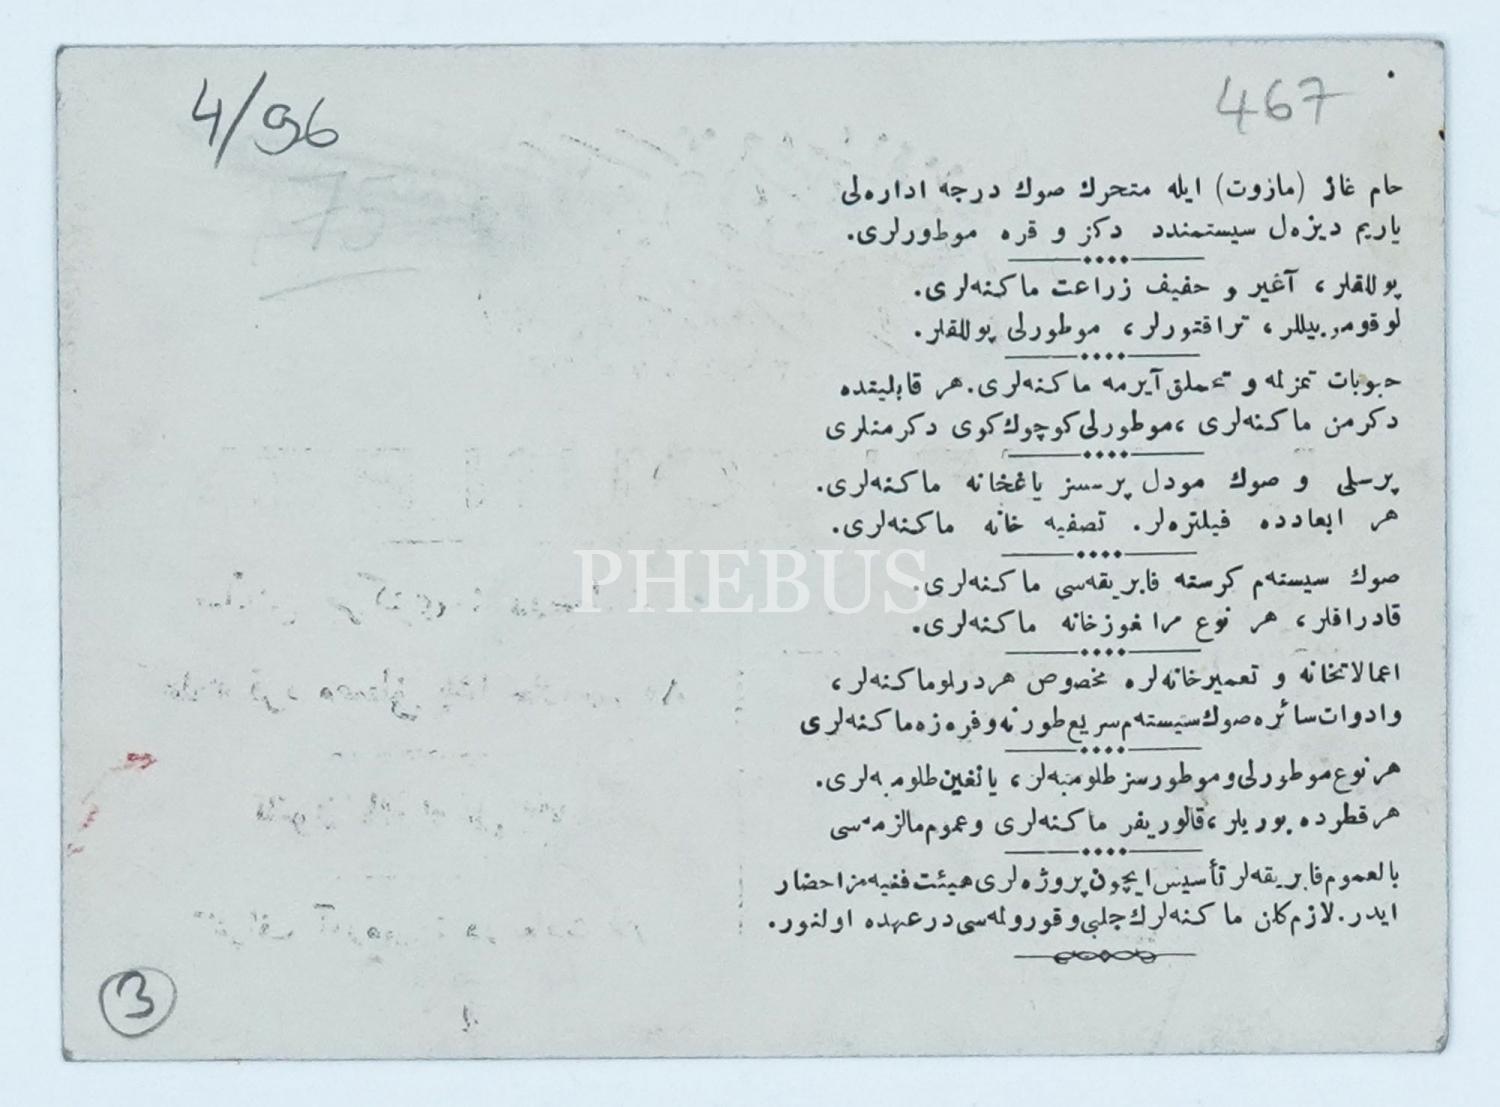 4/96
467
75
حام غاز (مازوت) ایله متحرك صوك درجه اداره‌لی
یاریم دیزه‌ل سیستمندد دكز و قره موطورلری.
پوللقلر، آغیر و حفیف زراعت ماكنه‌لری.
لوقوموبیللر، تراقتورلر، موطورلی پوللقلر.
حبوبات تمزلمه و تخملق آیرمه ماكنه‌لری. هر قابلیتده
دكرمن ماكنه‌لری، موطورلی كوچوك كوی دكرمنلری
پرسلی و صوك مودل پرسسز یاغخانه ماكنه‌لری.
هر ابعادده فیلتره‌لر. تصفیه خانه ماكنه‌لری.
PHEBUS
صوك سیسته‌م كرسته فابریقه‌سی ماكنه‌لری.
قادرافلر، هر نوع مراغوزخانه ماكنه‌لری.
اعمالاتخانه و تعمیرخانه‌لره مخصوص هر درلو ماكنه‌لر،
وادوات سائره صوك سیسته‌م سریع طورنه و فره‌زه ماكنه‌لری
هر نوع موطورلی و موطورسز طلومبه‌لر، یانغین طلومبه‌لری.
هر قطرده بوریلر، قالوریفر ماكنه‌لری و عموم مالزمه‌سی
بالعموم فابریقه‌لر تأسیس ایچون پروژه‌لری هیئت فنیه‌مز احضار
ایدر. لازم كلن ماكنه‌لرك جلبی و قورولمه‌سی در عهده اولنور.
3